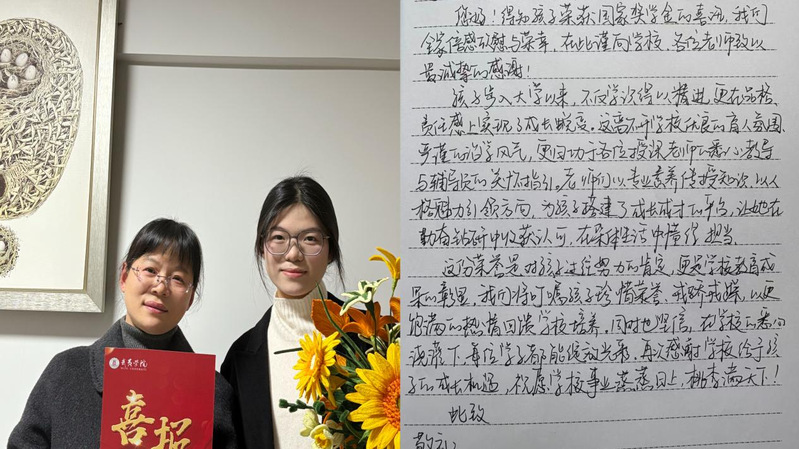 医药学院
喜报
您好！得知孩子荣获国家奖学金的喜讯，我们
全家倍感欣慰与荣幸，在此谨向学校、各位老师致以
最诚挚的感谢！
孩子步入大学以来，不仅学识得以精进，更在品格、
责任感上实现了成长蜕变。这离不开学校优良的育人氛围、
严谨的治学风气，更归功于各位授课老师的悉心教导
与辅导员的关怀指引。老师们以专业素养传授知识，以人
格魅力引领方向，为孩子搭建了成长成才的平台，让她在
勤奋钻研中收获认可，在集体生活中懂得担当。
这份荣誉是对孩子过往努力的肯定，更是学校教育成
果的彰显。我们将叮嘱孩子珍惜荣誉、戒骄戒躁，以更
饱满的热情回馈学校培养，同时也坚信，在学校的悉心
浇灌下，每位学子都能绽放光彩。再次感谢学校给予孩
子的成长机遇，祝愿学校事业蒸蒸日上，桃李满天下！
此致
敬礼